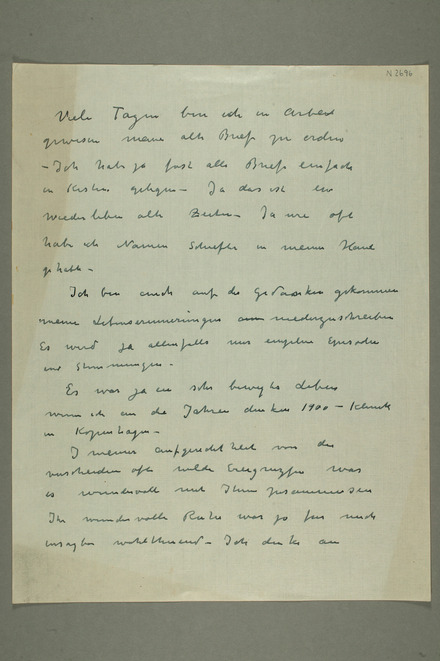 N 2696
Viele Tagen bin ich in Arbeit
gewesen meine alte Briefe zu ordnen
– Ich habe ja fast alle Briefe einfach
in Kisten gelegen – Ja das ist ein
wiederleben alte Zeiten – Ja wie oft
habe ich Namen Schiefler in meine Hand
gehabt –
Ich bin auch auf die Gedanken gekommen
meine Lebenserinnerungen niederzuschreiben
Es wird ja allenfalls nur einzelne Episoden
und Stimmungen –
Es war ja ein sehr bewegte Leben
wenn ich an die Jahren denken 1900 – Klinik
in Kopenhagen –
I meiner aufgeregtheit von die
verschieden ofte wilde Ereignissen war
es wundervoll mit Ihnen zusammensein
Ihr wundervolle Ruhe war ja für mich
unsagbar wohlthuend – Ich denke an